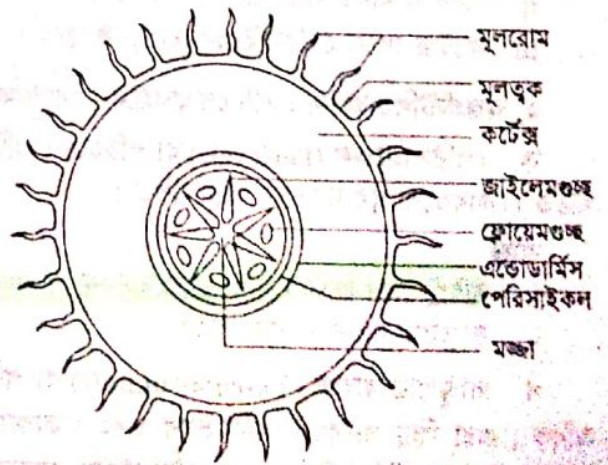 মূলরোম
মূলত্বক
কর্টেক্স
জাইলেমগুচ্ছ
ফ্লোয়েমগুচ্ছ
এন্ডোডার্মিস
পেরিসাইকল
মজ্জা